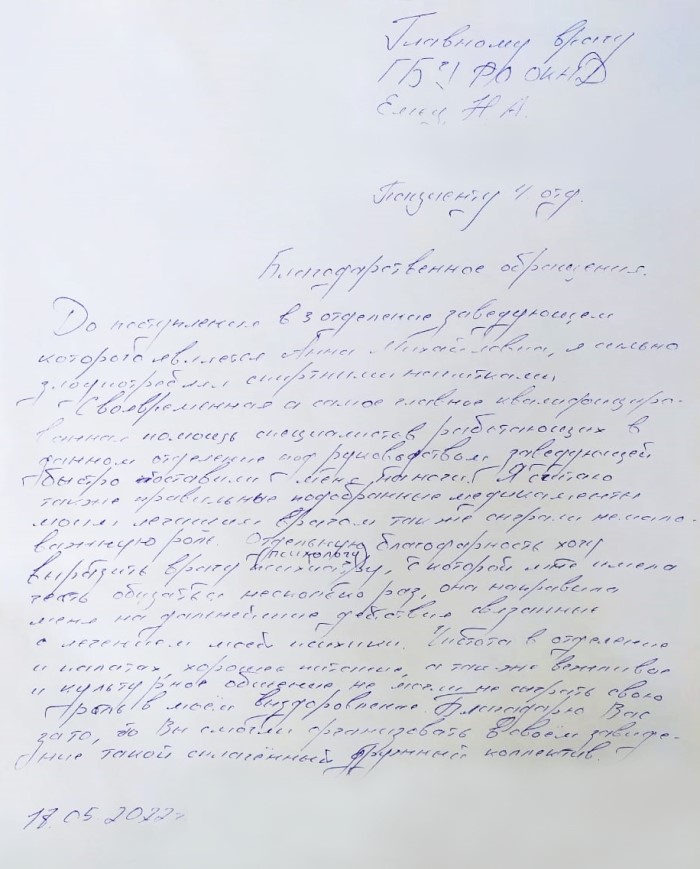 Главному врачу
ГБУ РО ОКНД
Н А.
Пациенту 4 отд.
Благодарственное обращения.
До поступления в 3 отделение заведующем
которого является Анна Михайловна, я сильно
злоупотреблял спиртными напитками.
Своевременная а самое главное квалифициро-
ванная помощь специалистов работающих в
данном отделение под руководством заведующей
быстро поставили меня на ноги. Я считаю
также правильные подобранные медикаменты
моим лечащим врачом также сиграли немало
важную роль. Отдельную благодарность хочу
выразить врачу психиатру, (психологу) с которой имела
честь общаться несколько раз, она направила
меня на дальнейшие действия связанные
с лечением моей психики. Чистота в отделение
и палатах, хорошее питание, а так-же вежливое
и культурное общение не могли не сиграть свою
роль в моём выздоровление. Благодарю Вас
зато, что Вы смогли организовать в своём заведе-
ние такой сплачённый дружный коллектив.
17.05.2022г.